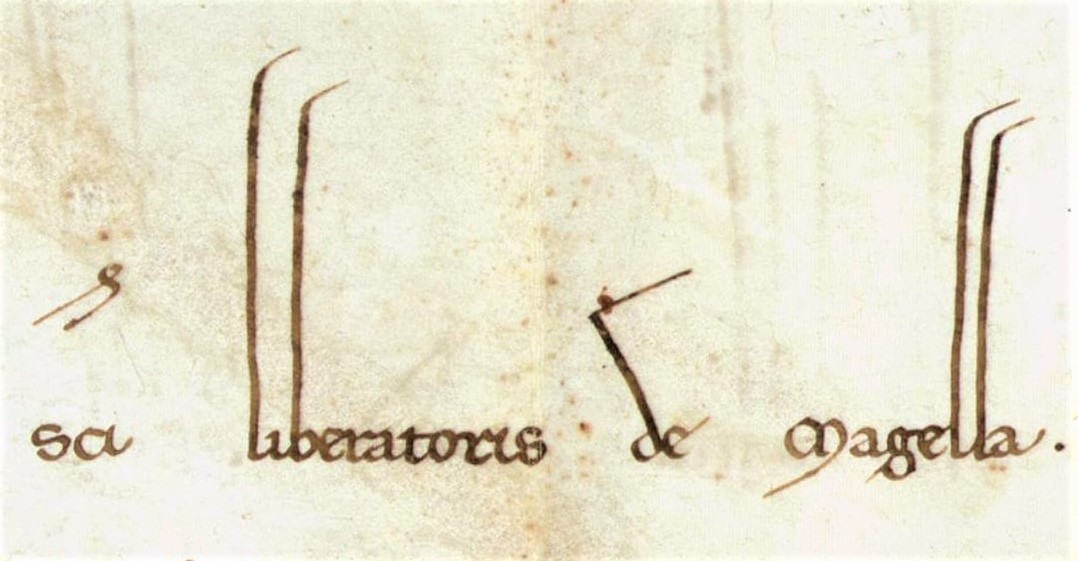 Sci liberatoris de Magella.